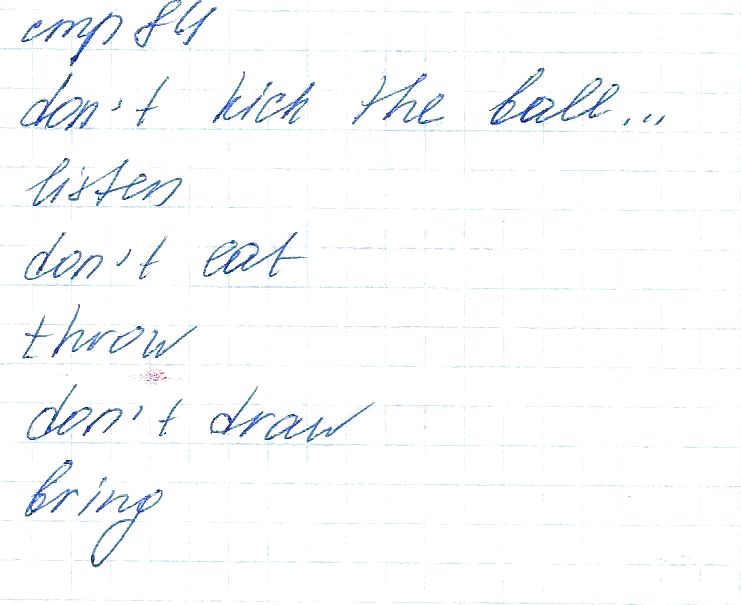 стр 84
don't kick the ball...
listen
don't eat
throw
don't draw
bring